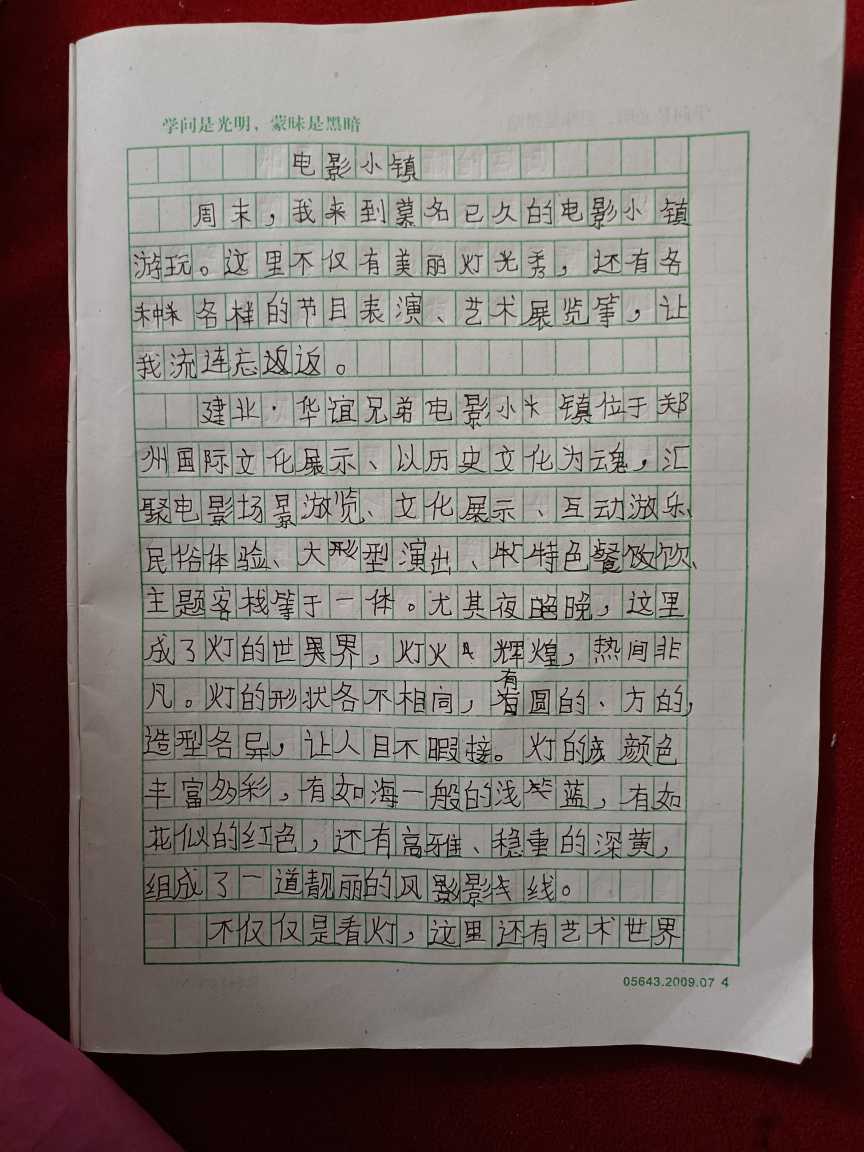 学问是光明，蒙昧是黑暗
电影小镇
周末，我来到慕名已久的电影小镇
游玩。这里不仅有美丽灯光秀，还有各
种各样的节目表演、艺术展览等，让
我流连忘返。
建业·华谊兄弟电影小镇位于郑
州国际文化展示、以历史文化为魂，汇
聚电影场景游览、文化展示、互动游乐、
民俗体验、大型演出、特色餐饮、
主题客栈等于一体。尤其夜晚，这里
成了灯的世界，灯火辉煌，热闹非
凡。灯的形状各不相同，有圆的、方的，
造型各异，让人目不暇接。灯的颜色
丰富多彩，有如海一般的浅蓝，有如
花似的红色，还有高雅、稳重的深黄，
组成了一道靓丽的风景线。
不仅仅是看灯，这里还有艺术世界
05643.2009.07 4